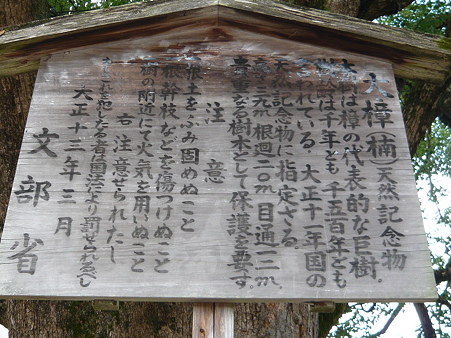 大樟(楠)天然記念物
本樹は樟の代表的な巨樹.
樹齢は千年とも千五百年とも
いわれている.大正十一年国の
天然記念物に指定さる
高三九m.根廻二〇m.目通一二m.
貴重なる樹木として保護を要す
注意
根土をふみ固めぬこと
根幹枝などを傷つけぬこと
樹の附近にて火気を用いぬこと
右注意せられたし
これを犯したる者は国法により罰せらるべし
大正十三年三月
文部省